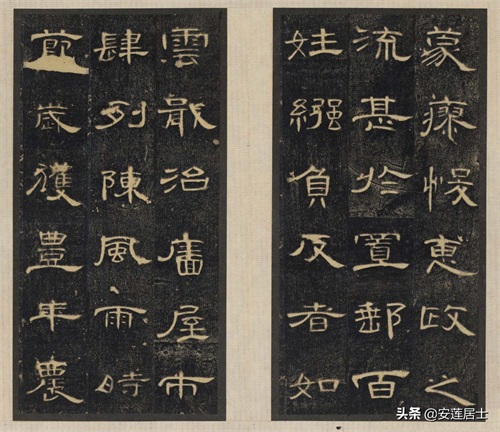 蒙瘳悛惠政之
流甚於置郵百
姓繦負反者如
雲戢治廧屋市
肆列陳風雨時
節歲獲豐年農
头条 @安莲居士